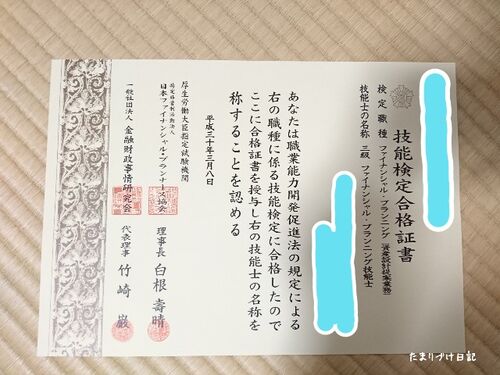 技能検定合格証書
検定職種 ファイナンシャル・プランニング(資産設計提案業務)
技能士の名称 三級 ファイナンシャル・プランニング技能士
あなたは職業能力開発促進法の規定による
右の職種に係る技能検定に合格したので
ここに合格証書を授与し右の技能士の名称を
称することを認める
平成三十年三月八日
厚生労働大臣指定試験機関
特定非営利活動法人
日本ファイナンシャル・プランナーズ協会
理事長 白根壽晴
一般社団法人 金融財政事情研究会
代表理事 竹崎巌
たまりづけ日記